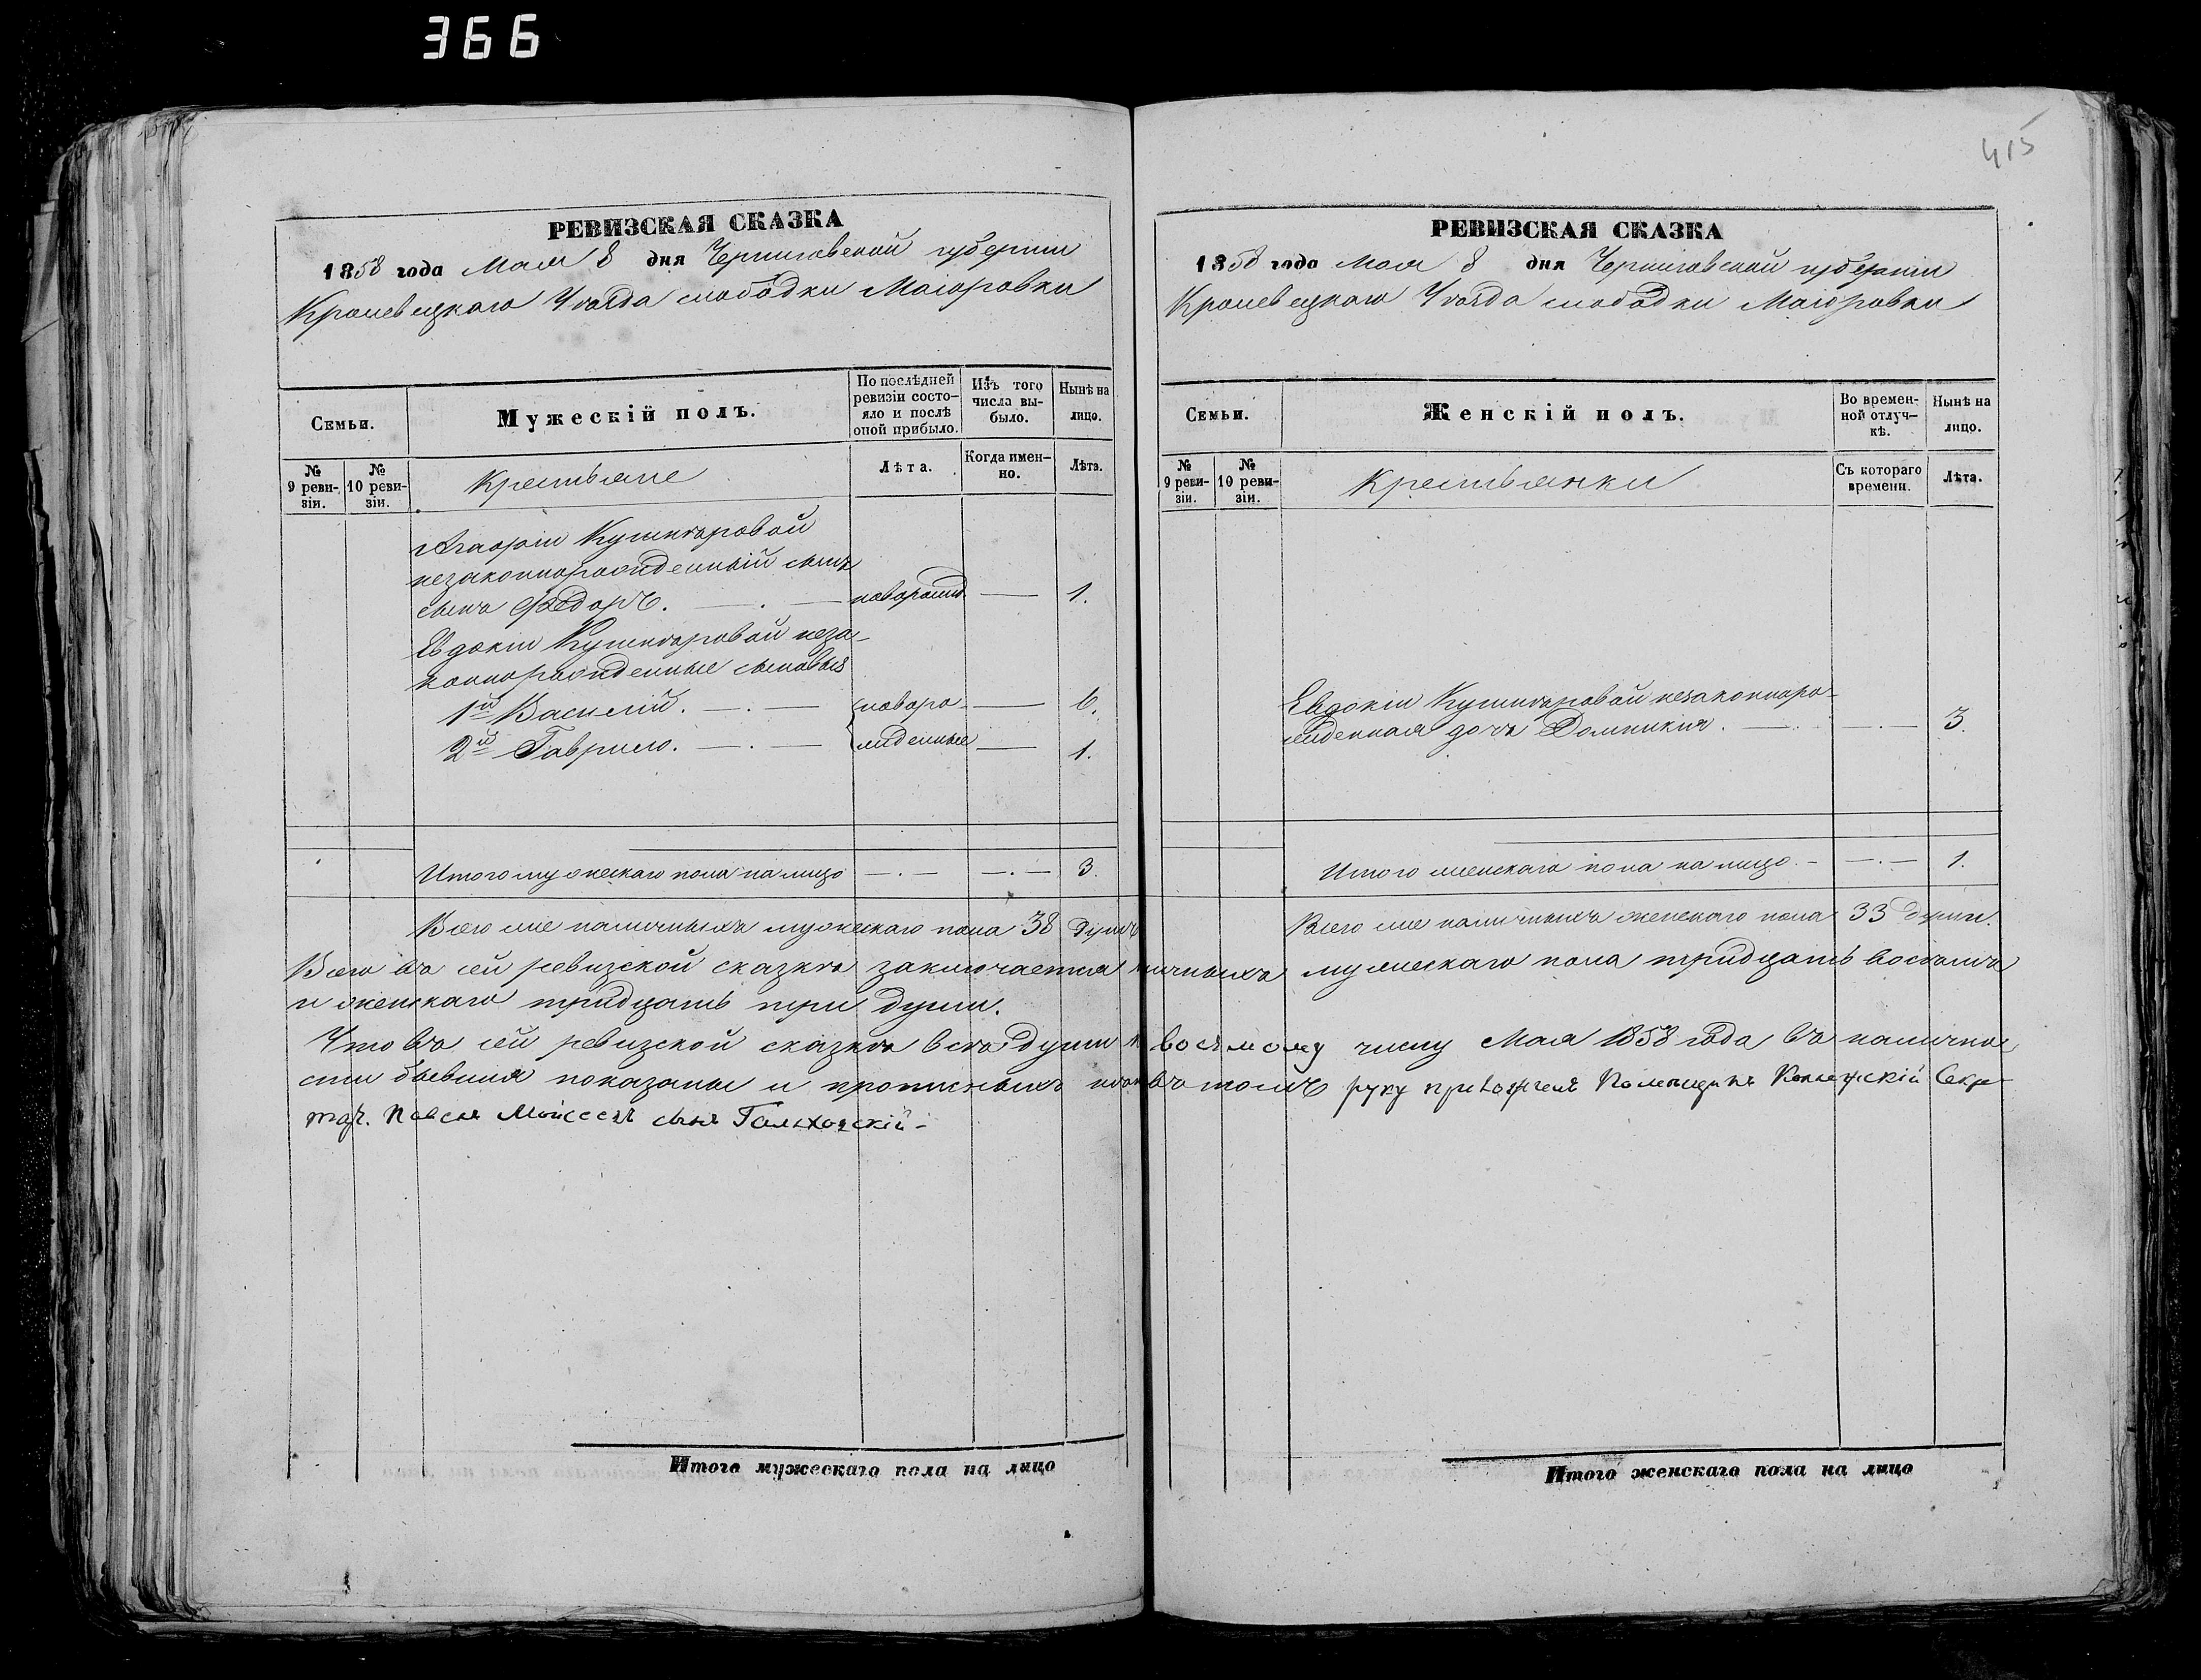 366
415
РЕВИЗСКАЯ СКАЗКА
1858 года Мая 8 дня Черниговской губернiи
Кролевецкаго Уѣзда слободки Маiоровки
Семьи.
Мужескiй полъ.
По послѣдней ревизiи состо-яло и послѣ оной прибыло.
Изъ того числа вы-было.
Нынѣ на лицо.
№ 9 реви-зiи.
№ 10 реви-зiи.
Крестьяне
Лѣта.
Когда имен-но.
Лѣта.
Кушнѣровой
незаконнорожденный сынъ
сынъ Ѳедоръ. новорожд 1.
Евдокiи Кушнѣровой неза-
коннорожденные сыновья
1й Василiй. новоро- 6.
2й Гаврило. жденные 1.
Итого мужескаго пола на лицо 3.
Всего же наличныхъ мужескаго пола 38 душъ
РЕВИЗСКАЯ СКАЗКА
1858 года Мая 8 дня Черниговской губернiи
Кролевецкаго Уѣзда слободки Маiоровки
Семьи.
Женскiй полъ.
Во времен-ной отлуч-кѣ.
Нынѣ на лицо.
№ 9 реви-зiи.
№ 10 реви-зiи.
Крестьянки
Съ котораго времени.
Лѣта.
Евдокiи Кушнѣровой незаконноро-
жденная дочь Домникiя. 3.
Итого женскаго пола на лицо 1.
Всего же наличныхъ женскаго пола 33 души.
Всего въ сей ревизской сказкѣ заключается мужескаго пола тридцать восемь
и женскаго тридцать три души.
Что въ сей ревизской сказкѣ всѣ души к восьмому числу Мая 1858 года въ налично
сти бывшiя показаны и прописныхъ въ томъ руку приложилъ Помещикъ Коллежскiй Секре
тар. Павелъ Моисеевъ сынъ
Итого мужескаго пола на лицо
Итого женскаго пола на лицо